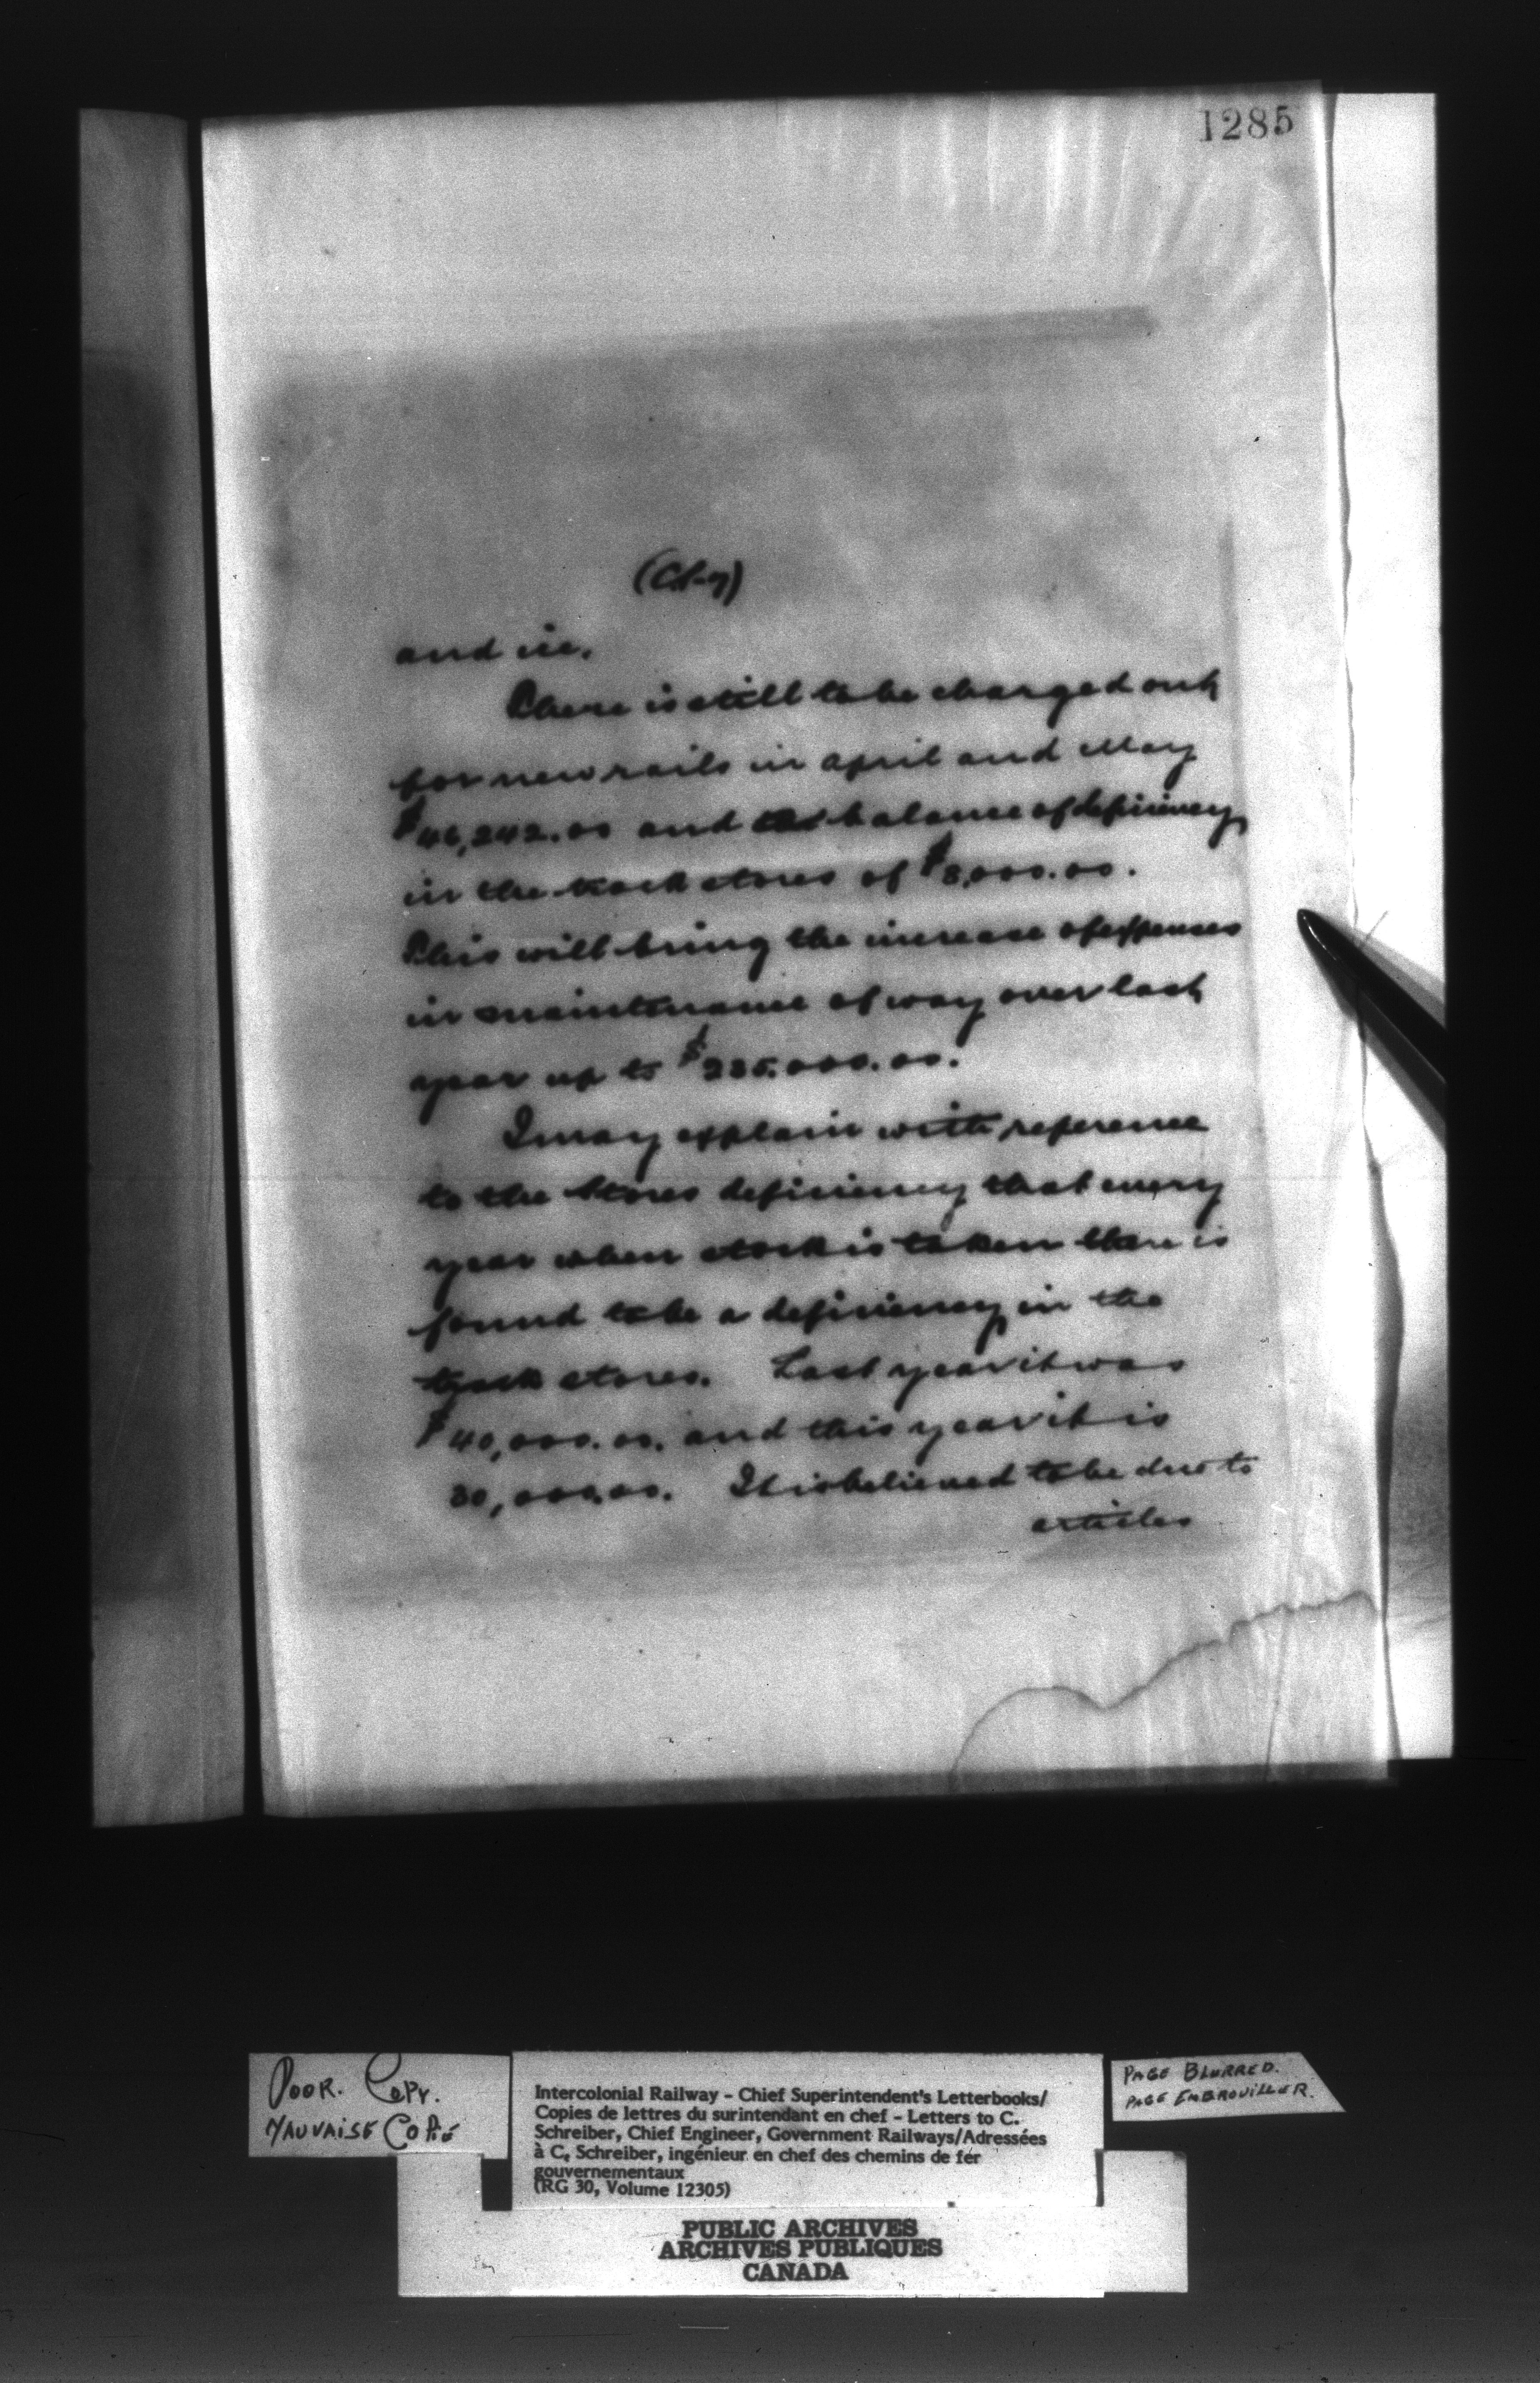 1285
and ice.
There is still to be charged out,
for new rails in April and May
$46,242.00 and the balance of deficiency
in the track stores of $8,000.00.
This will bring the increase of expenses
in maintenance of way over last
year up to $235,000.00.
I may explain with reference
to the Stores deficiency that every
year when stock is taken there is
found to be a deficiency in the
track stores. Last year it was
$40,000.00. and this year it is
30,000.00. It is believed to be due to
articles
POOR. COPY.
MAUVAISE COPIÉ
Intercolonial Railway – Chief Superintendent's Letterbooks/
Copies de lettres du surintendant en chef – Letters to C.
Schreiber, Chief Engineer, Government Railways/Adressées
à C. Schreiber, ingénieur en chef des chemins de fer
gouvernementaux
(RG 30, Volume 12305)
PAGE BLURRED.
PAGE EMBROUILLER.
PUBLIC ARCHIVES
ARCHIVES PUBLIQUES
CANADA